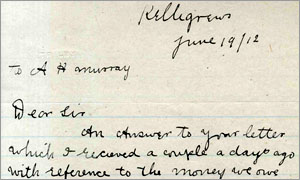 Kelligrews
June 19/12
To A H Murray
Dear Sir.
An Answer to your letter
which I recieved a couple a days ago
with reference to the money we owe